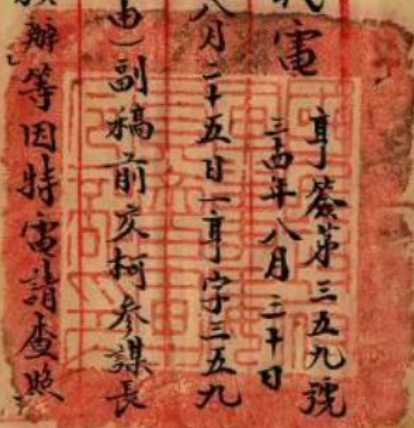 電
亨簽第三五九號
三四年八月三十日
八月二十五日一亨字三五九
由）副稿前交柯參謀長
辦等因特電請查照